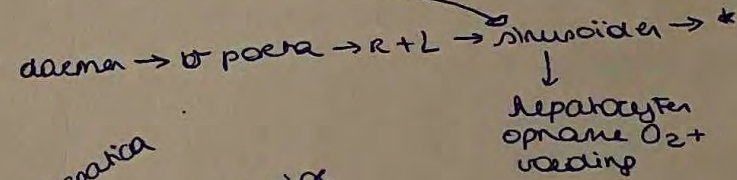 darmen → v poera → R + L → sinusoïden → *
↓
hepatocyten
opname O2 +
voeding